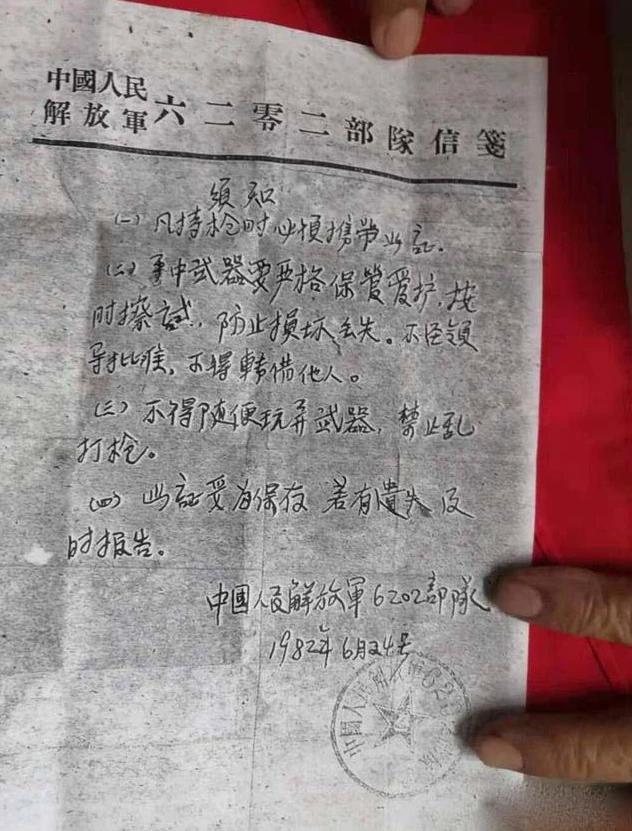 中國人民
解放軍六二零二部隊信箋
须知
(一) 凡持枪时必须携带此証.
(二) 手中武器要严格保管爱护.按
时擦试,防止損坏丢失。不经领
导批准,不得轉借他人。
(三) 不得随便玩弄武器,禁止乱
打枪。
(四) 此証妥为保存 若有遺失及
时报告。
中國人民解放軍6202部隊
1982年6月24号
中國人民解放軍62